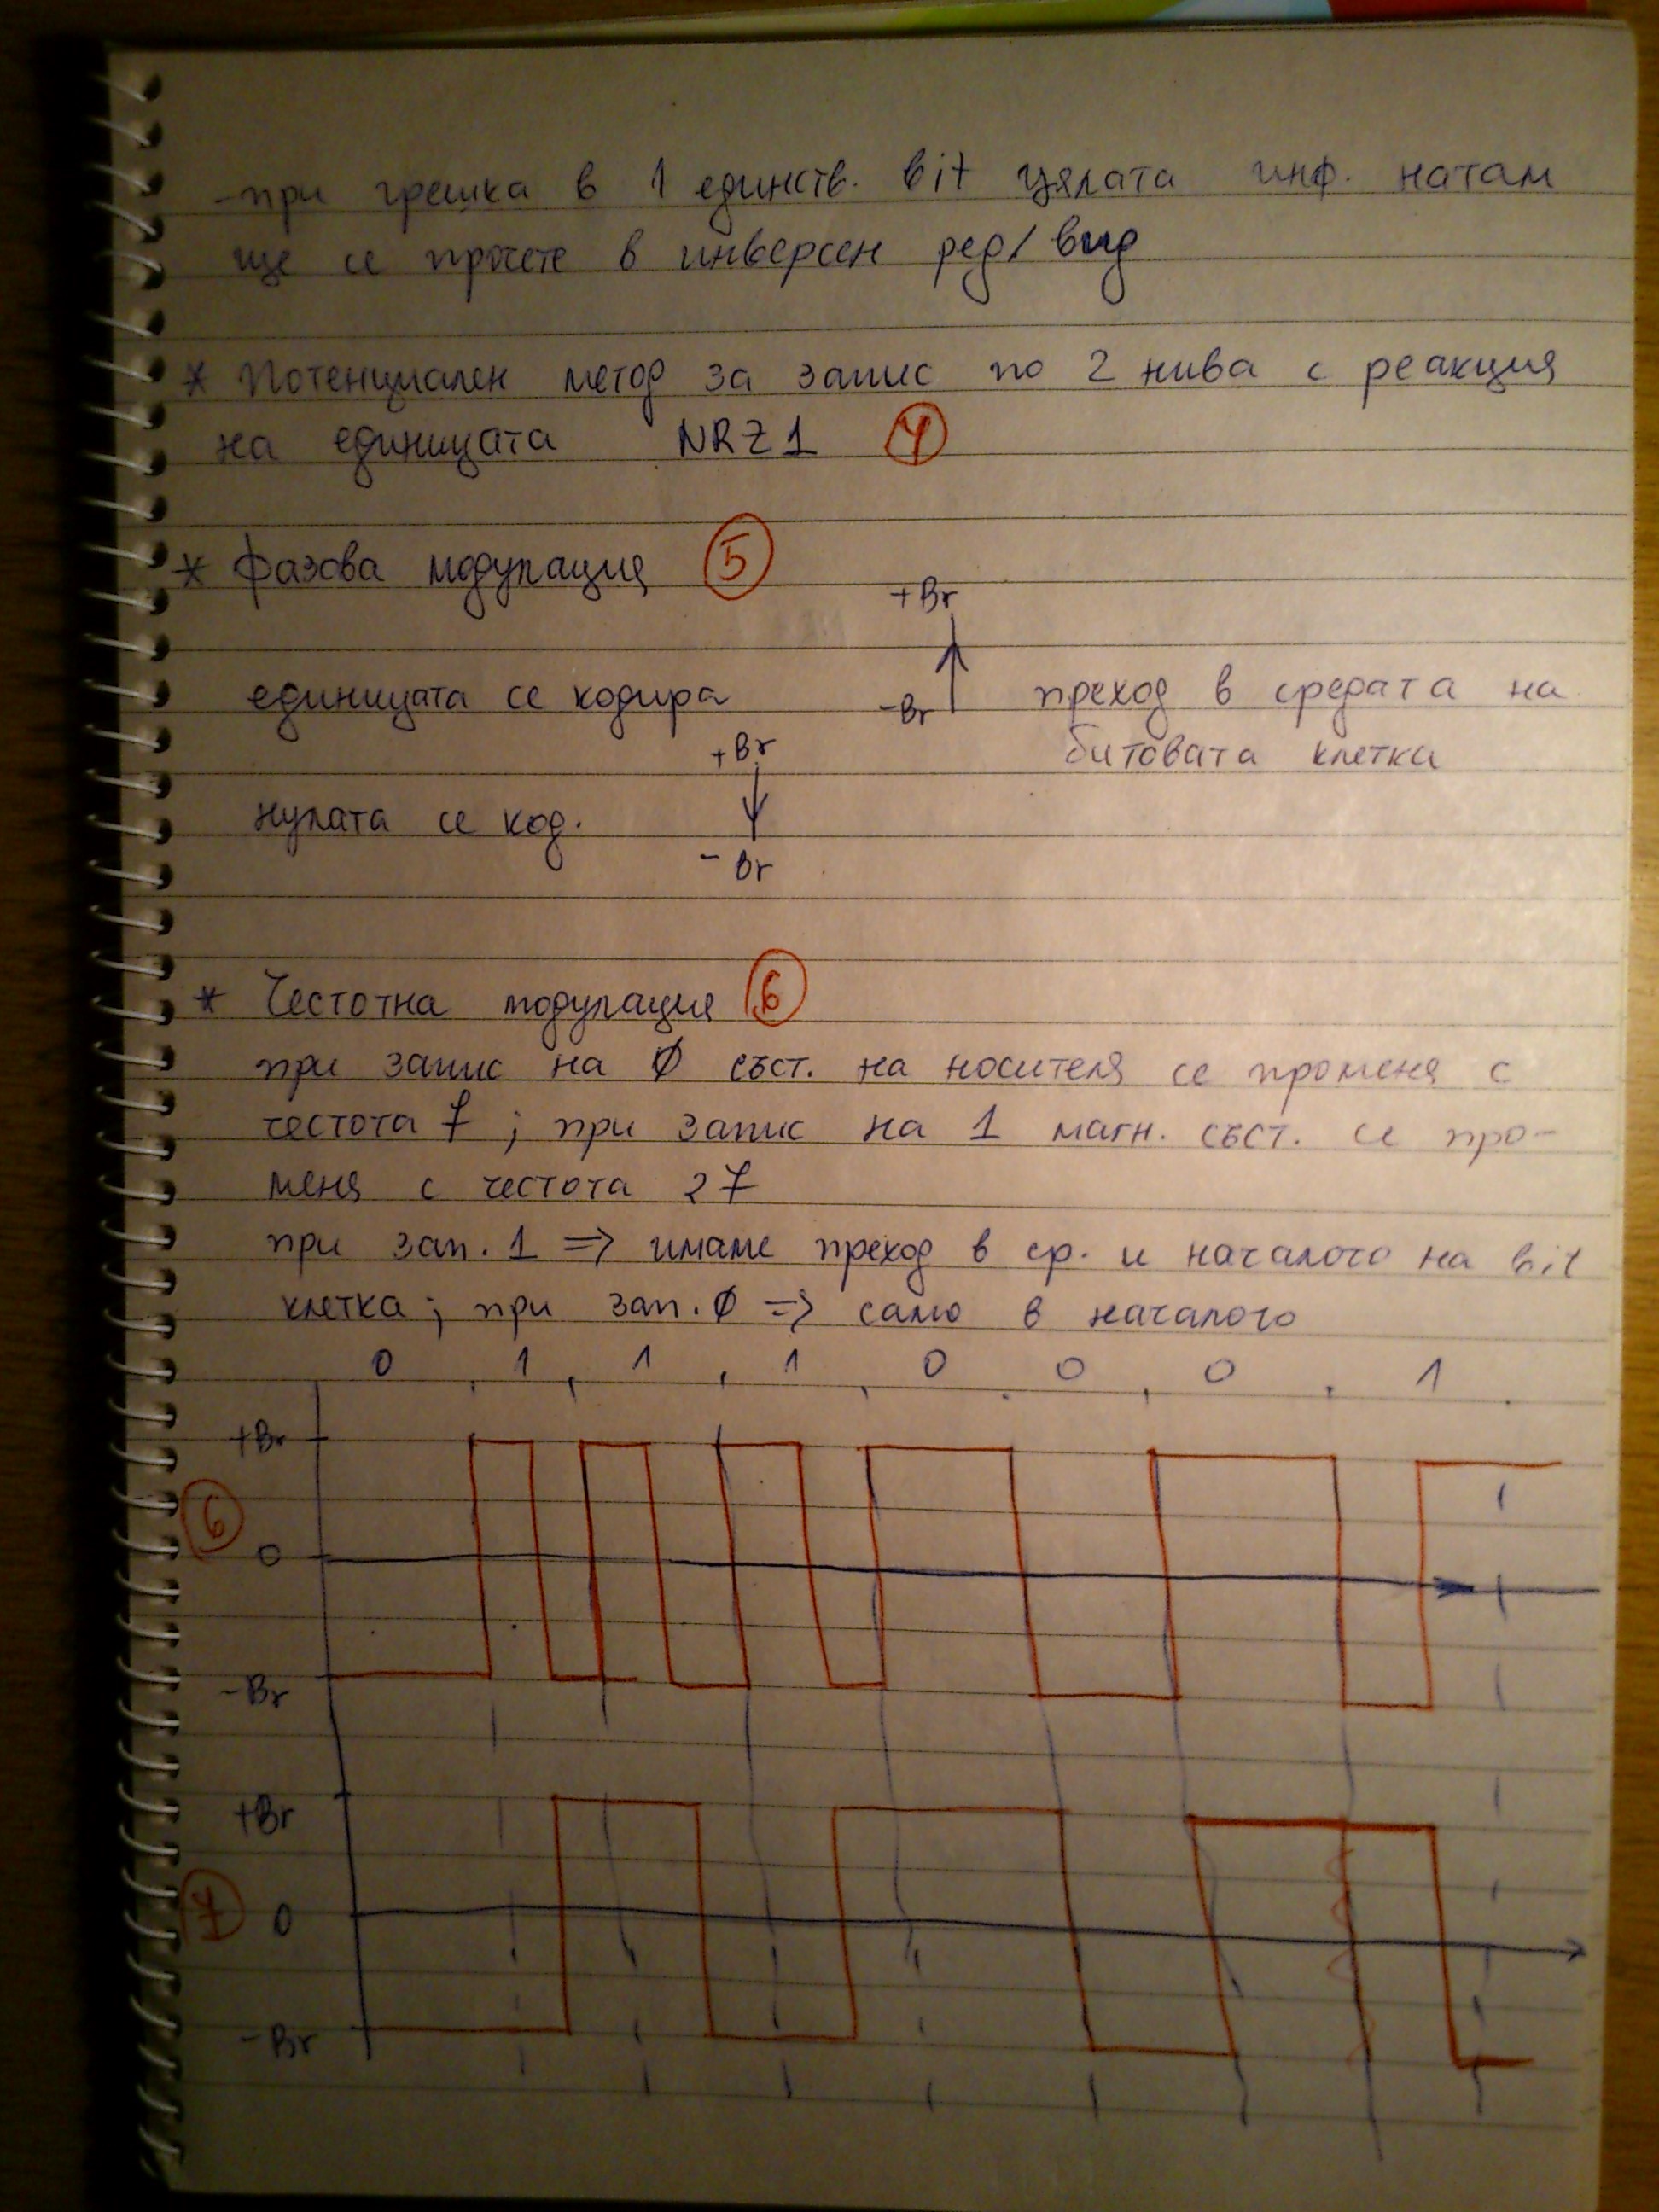 -при грешка в 1 единств. bit цялата инф. натам
ще се прочете в инверсен ред/вид
* Потенциален метод за запис по 2 нива с реакция
на единицата NRZ1 4
* Фазова модулация 5
+Br
единицата се кодира -Br преход в средата на
битовата клетка
+Br
нулата се код.
-Br
* Честотна модулация 6
при запис на 0 съст. на носителя се променя с
честота f ; при запис на 1 магн. съст. се про-
меня с честота 2f
при зап. 1 => имаме преход в ср. и началото на bit
клетка; при зап. 0 => само в началото
0 1 1 1 0 0 0 1
+Br
6
0
-Br
+Br
7
0
-Br